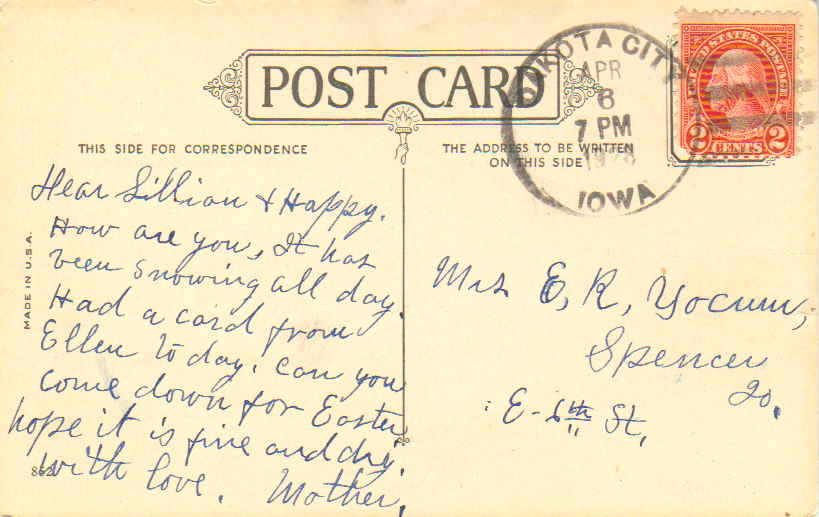 POST CARD
THIS SIDE FOR CORRESPONDENCE
THE ADDRESS TO BE WRITTEN
ON THIS SIDE
MADE IN U.S.A.
CITY
APR
6
7 PM
1928
IOWA
UNITED STATES POSTAGE
2 CENTS 2
Dear Lillian & Happy.
How are you, It has
been snowing all day.
Had a card from
Ellen to day. Can you
come down for Easter
hope it is fine and dry.
with love. Mother.
Mrs E, R, Yocum,
Spencer
Io.
E-6th St,